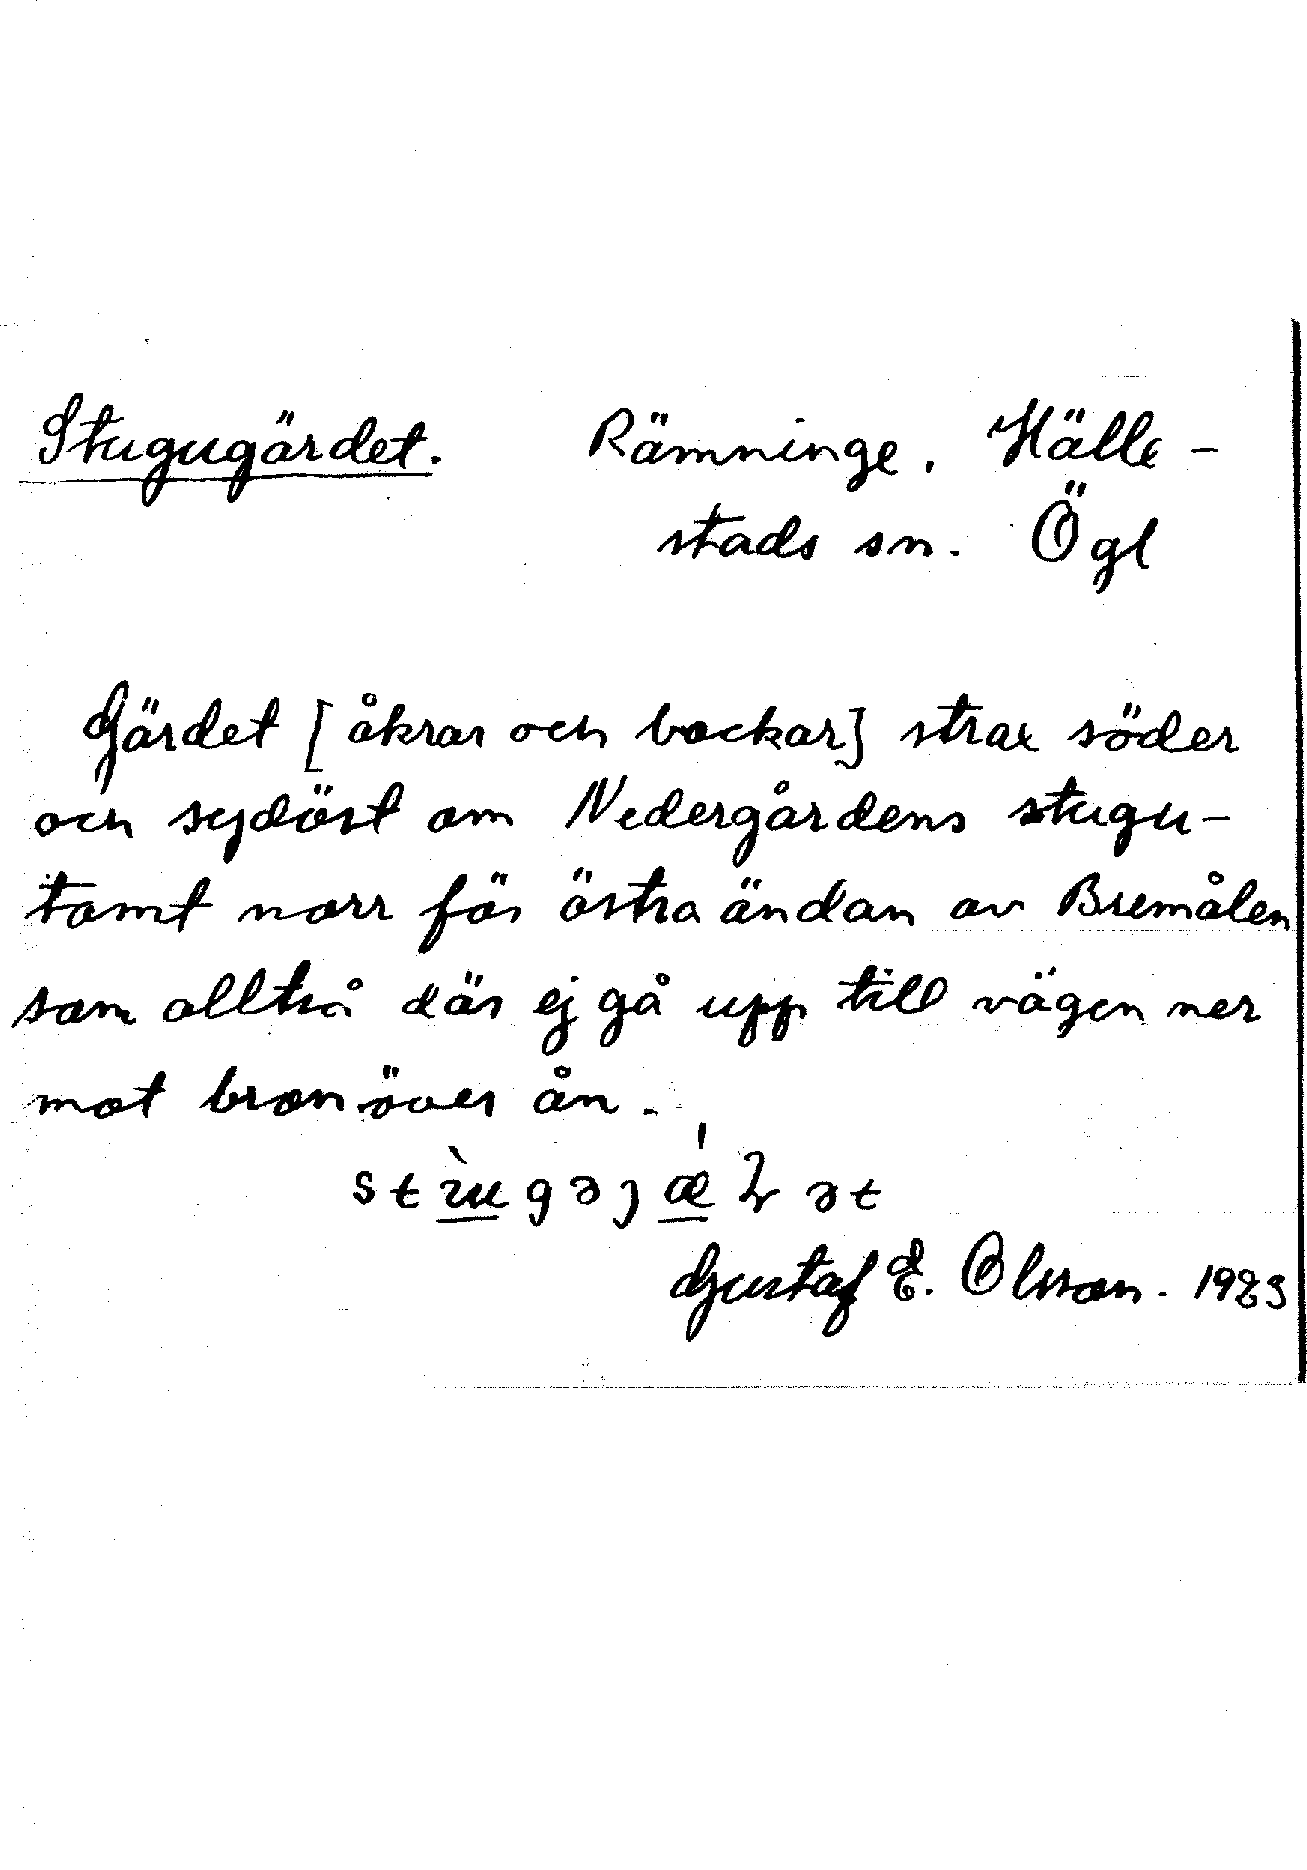 Stugugärdet. Rämninge. Hälle-
stads sn. Ögl
Gärdet [åkrar och backar] strax söder
och sydöst om Nedergårdens stugu-
tomt norr för östra ändan av Bremålen
som alltså där ej gå upp till vägen ner
mot bron över ån.
Gustaf E. Olsson.